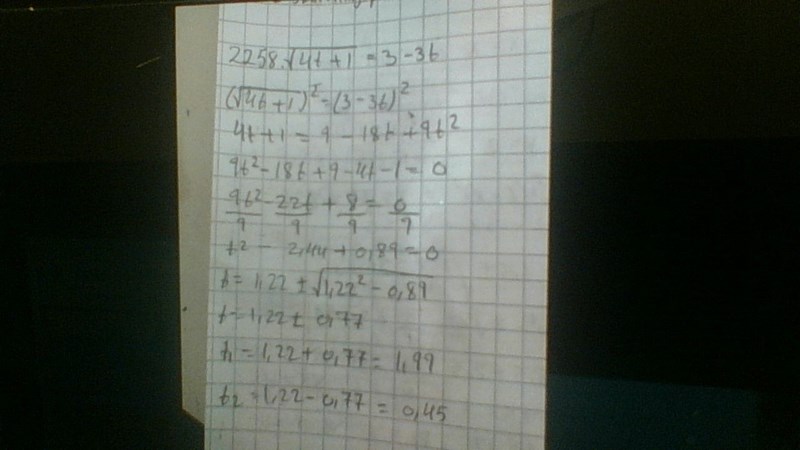 2258. √4t+1 = 3-3t
(√4t+1)² = (3-3t)²
4t+1 = 9 - 18t + 9t²
9t² - 18t + 9 - 4t - 1 = 0
9t²/9 - 22t/9 + 8/9 = 0/9
t² - 2,44 + 0,89 = 0
t = 1,22 ± √1,22² - 0,89
t = 1,22 ± 0,77
t₁ = 1,22 + 0,77 = 1,99
t₂ = 1,22 - 0,77 = 0,45